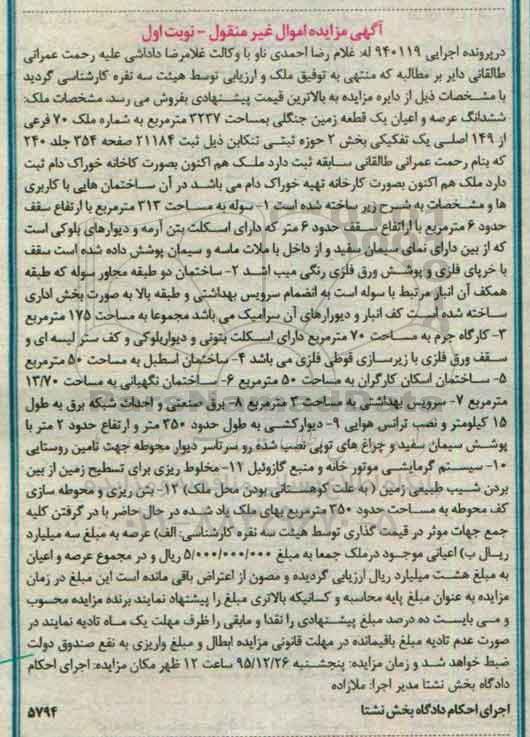 آگهی مزایده اموال غیر منقول - نوبت اول
درپرونده اجرایی ۹۴۰۱۱۹ له: غلام رضا احمدی ناو با وکالت غلامرضا داداشی علیه رحمت عمرانی
طالقانی دایر بر مطالبه که منتهی به توفیق ملک و ارزیابی توسط هیئت سه نفره کارشناسی گردید
با مشخصات ذیل از دایره مزایده به بالاترین قیمت پیشنهادی بفروش می رسد. مشخصات ملک:
ششدانگ عرصه و اعیان یک قطعه زمین جنگلی بمساحت ۳۲۳۷ مترمربع به شماره ملک ۷۰ فرعی
از ۱۴۹ اصلی یک تفکیکی بخش ۲ حوزه ثبتی تنکابن ذیل ثبت ۲۱۱۸۴ صفحه ۳۵۴ جلد ۲۴۰
که بنام رحمت عمرانی طالقانی سابقه ثبت دارد ملک هم اکنون بصورت کاخانه خوراک دام ثبت
دارد ملک هم اکنون بصورت کارخانه تهیه خوراک دام می باشد در آن ساختمان هایی با کاربری
ها و مشخصات به شرح زیر ساخته شده است ۱- سوله به مساحت ۳۱۳ مترمربع با ارتفاع سقف
حدود ۶ مترمربع با ارتفاع سقف حدود ۶ متر که دارای اسکلت بتن آرمه و دیوارهای بلوکی است
که از بین دارای نمای سیمان سفید و از داخل با ملات ماسه و سیمان پوشش داده شده است سقف
با خرپای فلزی و پوشش ورق فلزی رنگی میب اشد ۲- ساختمان دو طبقه مجاور سوله که طبقه
همکف آن انبار مرتبط با سوله است به انضمام سرویس بهداشتی و طبقه بالا به صورت بخش اداری
ساخته شده است کف انبار و دیورارهای آن سرامیک می باشد مجموعا به مساحت ۱۷۵ مترمربع
۳- کارگاه جرم به مساحت ۷۰ مترمربع دارای اسکلت بتونی و دیواربلوکی و کف ستر لیسه ای و
سقف ورق فلزی با زیرسازی قوطی فلزی می باشد ۴- ساختمان اسطبل به مساحت ۵۰ مترمربع
۵- ساختمان اسکان کارگران به مساحت ۵۰ مترمربع ۶- ساختمان نگهبانی به مساحت ۱۳/۷۰
مترمربع ۷- سرویس بهداشتی به مساحت ۳ مترمربع ۸- برق صنعتی و احداث شبکه برق به طول
۱۵ کیلومتر و نصب ترانس هوایی ۹- دیوارکشی به طول حدود ۳۵۰ متر و ارتفاع حدود ۲ متر با
پوشش سیمان سفید و چراغ های توپی نصب شده رو سرتاسر دیوار محوطه جهت تامین روستایی
۱۰- سیستم گرمایشی موتور خانه و منبع گازوئیل ۱۱- مخلوط ریزی برای تسطیح زمین از بین
بردن شیب طبیعی زمین ( به علت کوهستانی بودن محل ملک) ۱۲- بتن ریزی و محوطه سازی
کف محوطه به مساحت حدود ۳۵۰ مترمربع بهای ملک یاد شده در حال حاضر با در گرفتن کلیه
جمع جهات موثر در قیمت گذاری توسط هیئت سه نفره کارشناسی: الف) عرصه به مبلغ سه میلیارد
ریال ب) اعیانی موجود درملک جمعا به مبلغ ۵/۰۰۰/۰۰۰/۰۰۰ ریال و در مجموع عرصه و اعیان
به مبلغ هشت میلیارد ریال ارزیابی گردیده و مصون از اعتراض باقی مانده است این مبلغ در زمان
مزایده به عنوان مبلغ پایه محاسبه و کسانیکه بالاتری مبلغ را پیشنهاد نمایند برنده مزایده محسوب
و می بایست ده درصد مبلغ پیشنهادی را نقدا و مابقی را ظرف مهلت یک ماه تادیه نمایند در
صورت عدم تادیه مبلغ باقیمانده در مهلت قانونی مزایده ابطال و مبلغ واریزی به نفع صندوق دولت
ضبط خواهد شد و زمان مزایده: پنجشنبه ۹۵/۱۲/۲۶ ساعت ۱۲ ظهر مکان مزایده: اجرای احکام
دادگاه بخش نشتا مدیر اجرا: ملازاده
اجرای احکام دادگاه بخش نشتا
۵۷۹۴